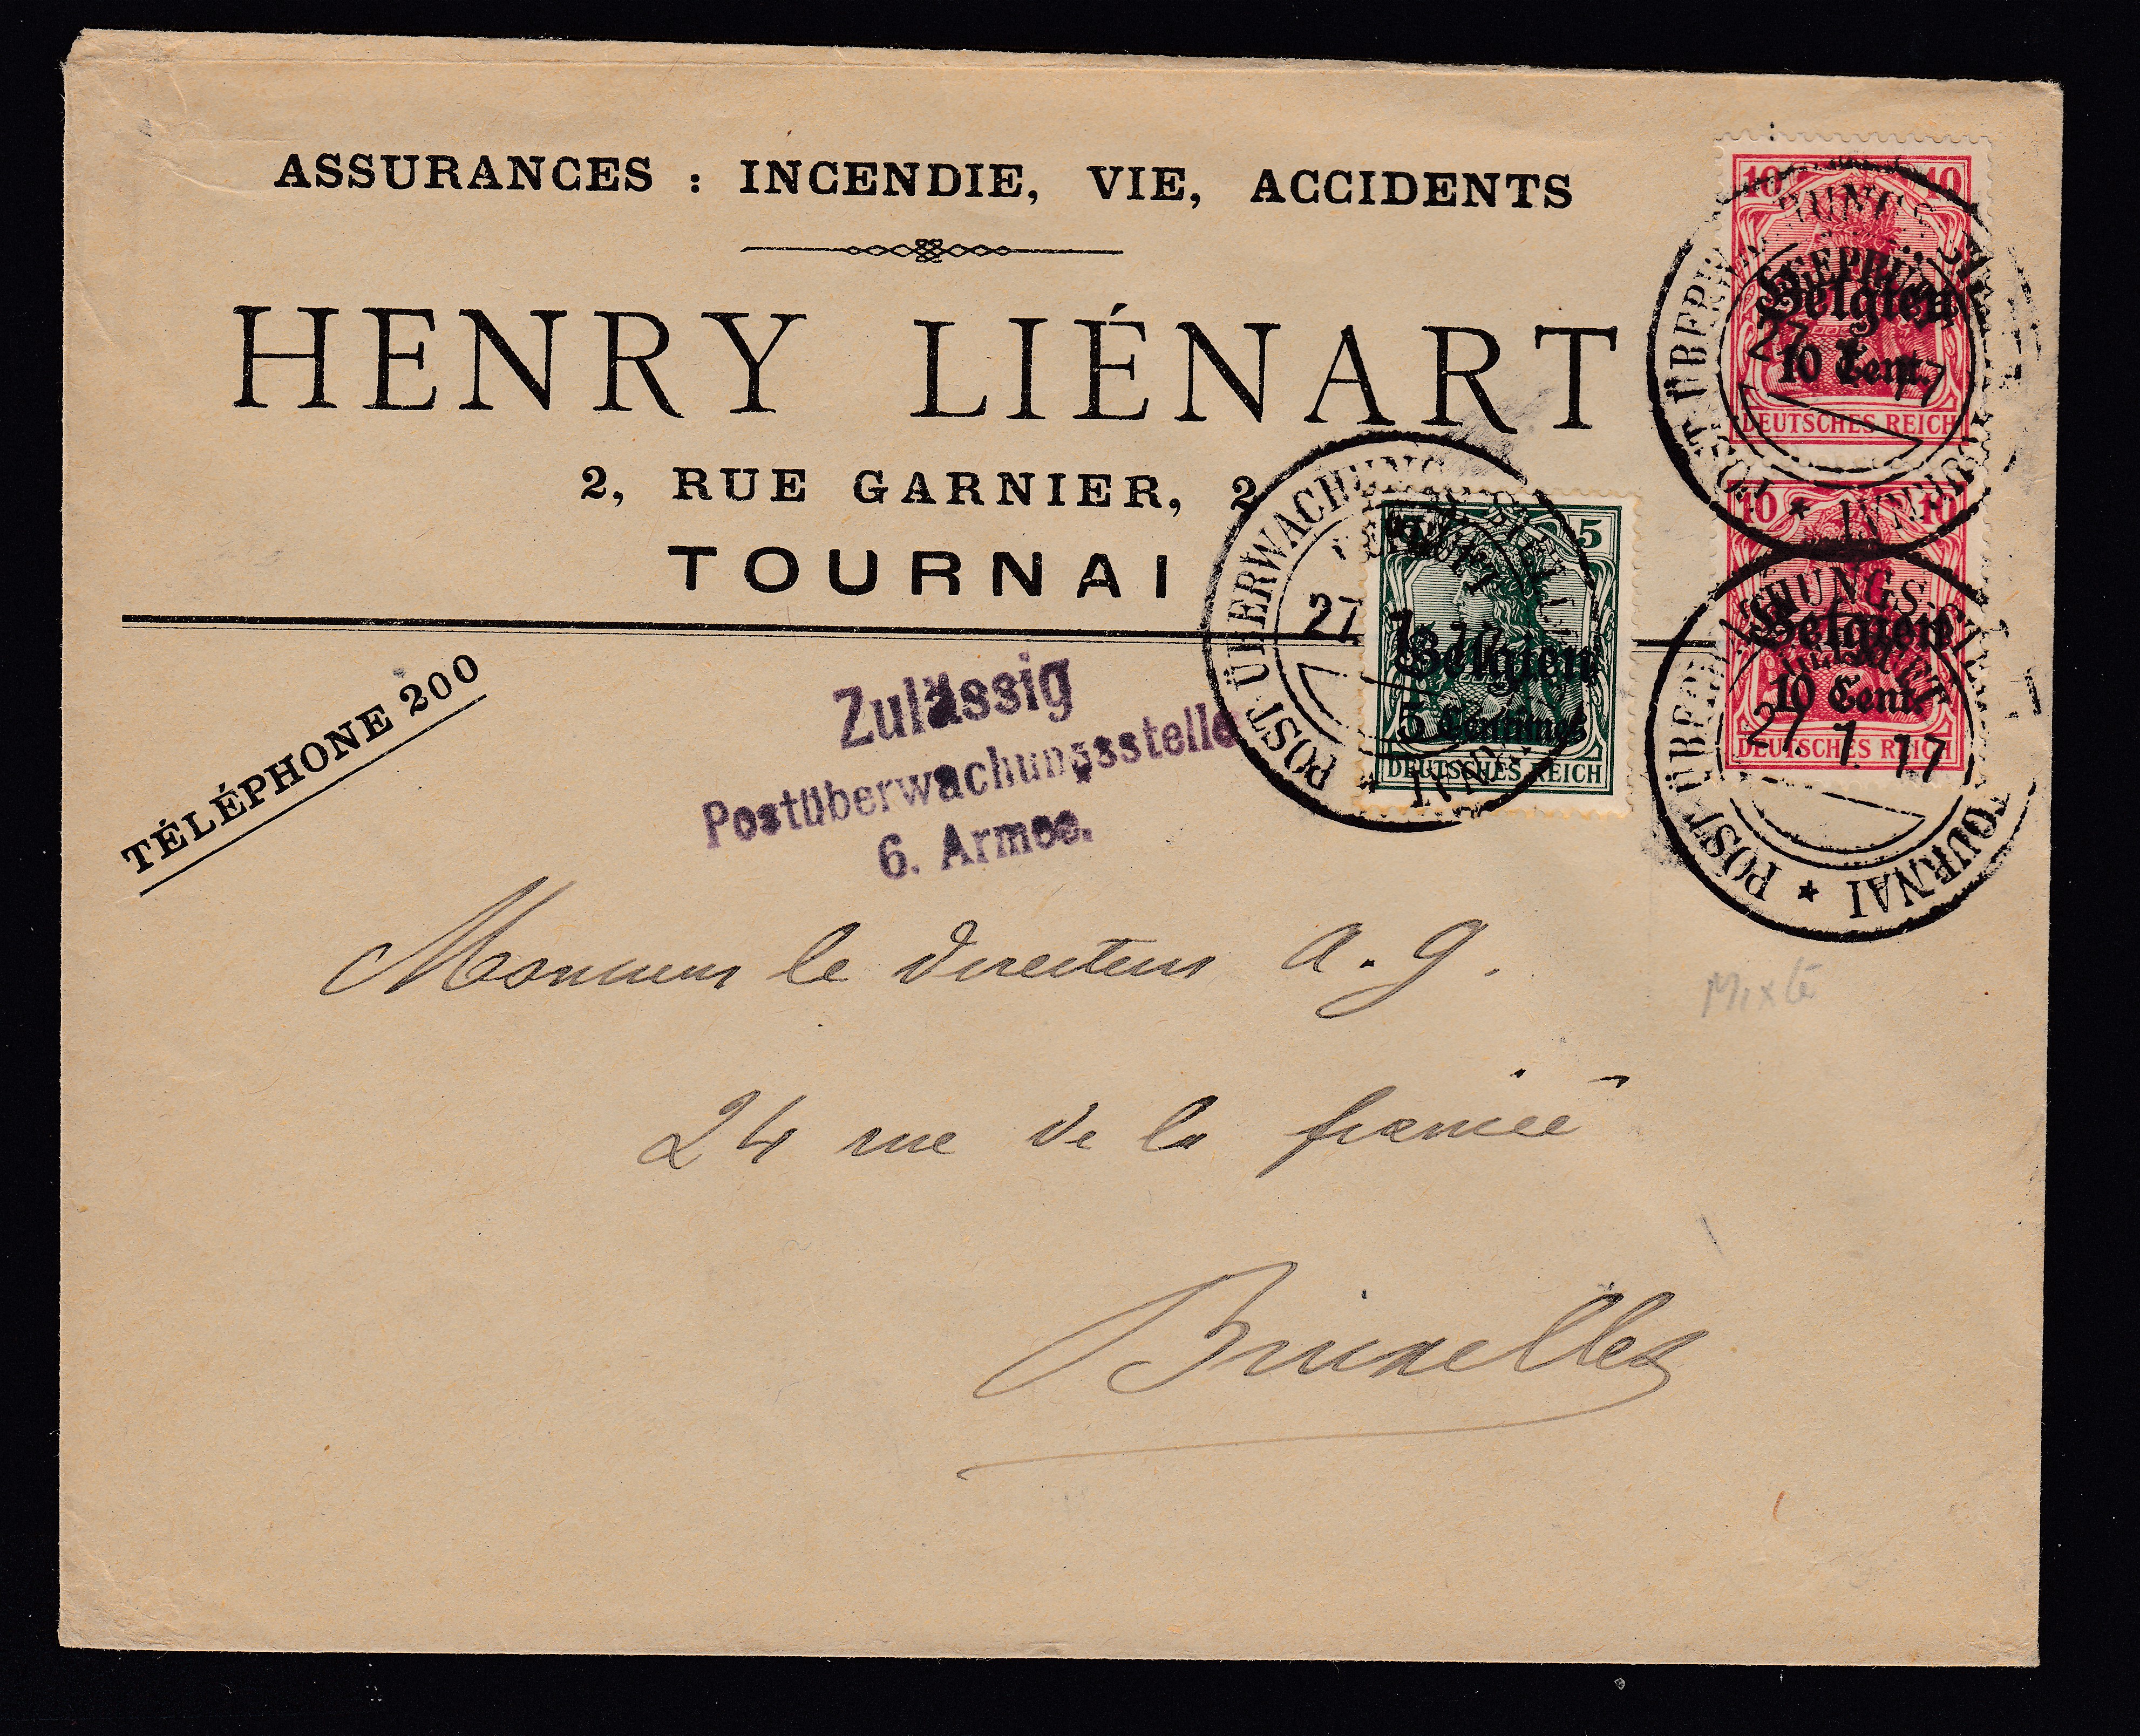 ASSURANCES : INCENDIE, VIE, ACCIDENTS
HENRY LIÉNART
2, RUE GARNIER, 2
TOURNAI
TÉLÉPHONE 200
Zulässig
Postüberwachungsstelle
6. Armee.
10 10
Belgien
10 Cent.
DEUTSCHES REICH
POST ÜBERWACHUNGS
GEPRÜFT
27 1 17
TOURNAI
10 10
Belgien
10 Cent.
DEUTSCHES REICH
POST ÜBERWACHUNGS
27. 1. 17
TOURNAI
5
Belgien
5 Centimes
DEUTSCHES REICH
POST ÜBERWACHUNGS
27
Monsieur le directeur A. G.
24 rue de la
Bruxelles
Mixte